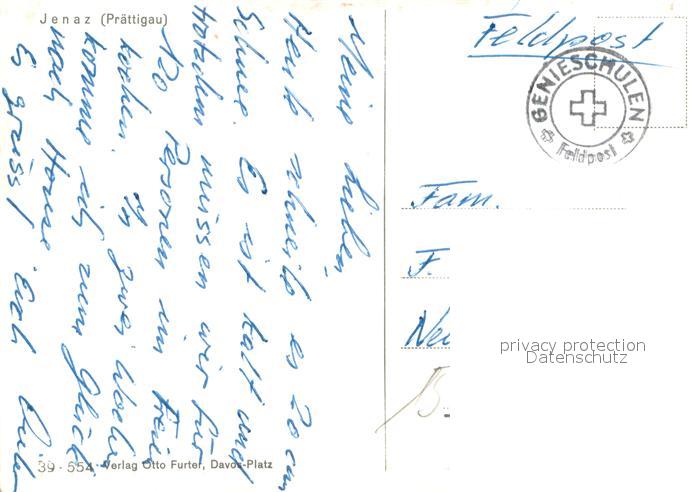 Jenaz (Prättigau)
Meine Lieben
Herb schneit es 20 cm
Schnee. Es ist kalt und
trotzdem müssen wir für
120 Personen im Freien
kochen. In zwei Wochen
komme ich zum Glück
nach Hause.
Es grüsst Euch
39-554 Verlag Otto Furter, Davos-Platz
Feldpost
GENIESCHULEN
Feldpost
Fam.
F.
privacy protection
Datenschutz